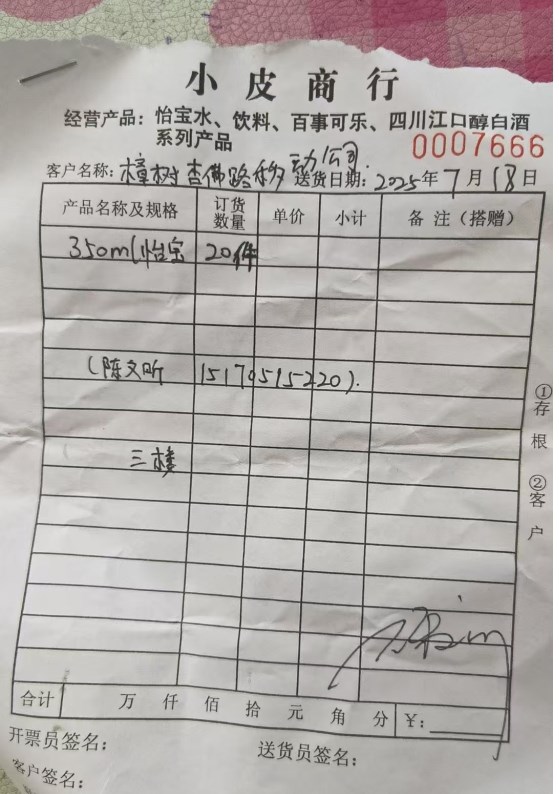 小皮商行
经营产品：怡宝水、饮料、百事可乐、四川江口醇白酒
系列产品
0007666
客户名称：樟树杏佛路移动公司. 送货日期：2025年7月18日
产品名称及规格 订货数量 单价 小计 备 注（搭赠）
350ml怡宝 20件
(陈文昕 15170515220).
三楼
①存根 ②客户
合计 万 仟 佰 拾 元 角 分 ¥：
开票员签名： 送货员签名：
客户签名：